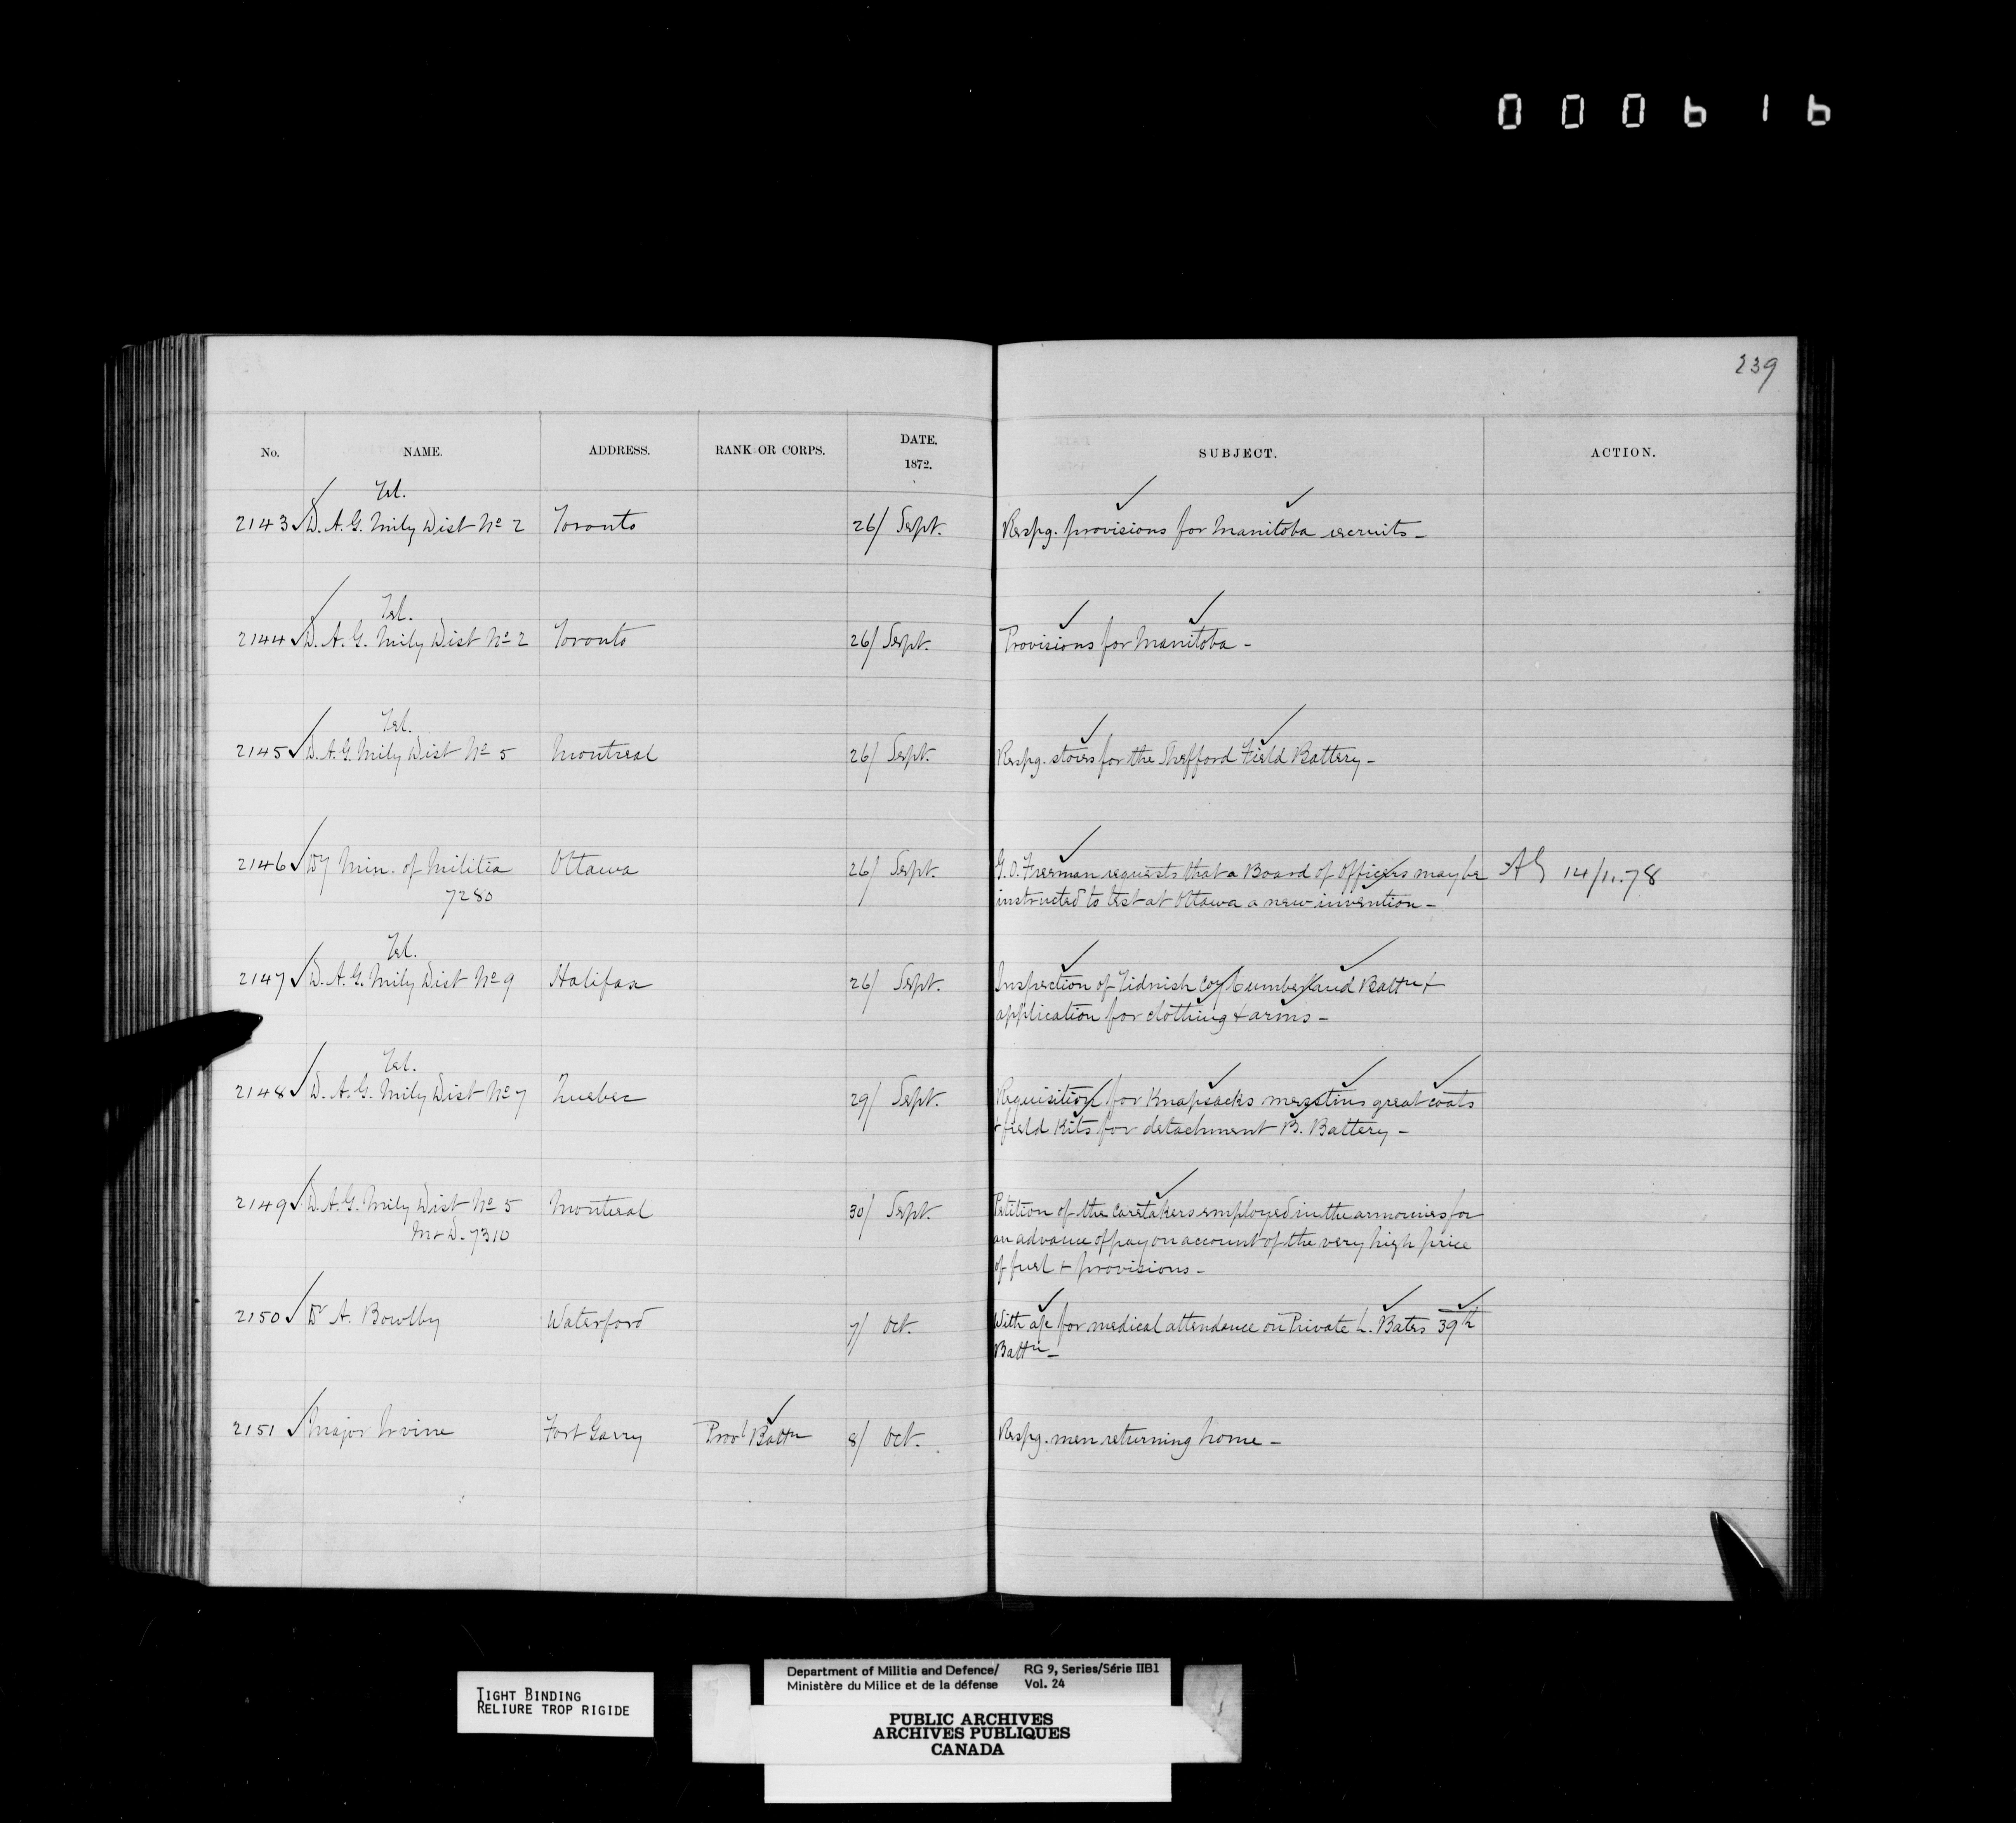 000616
239
No. NAME. ADDRESS. RANK OR CORPS. DATE. 1872. SUBJECT. ACTION.
Tel.
2143 D. A. G. Mily Dist No 2 Toronto 26/ Sept. Respg. provisions for Manitoba recruits -
Tel.
2144 D. A. G. Mily Dist No 2 Toronto 26/ Sept. Provisions for Manitoba -
Tel.
2145 D. A. G. Mily Dist No 5 Montreal 26/ Sept. Respg. stores for the Shefford Field Battery -
2146 Dy Min. of Militia Ottawa 26/ Sept. G. O. Freeman requests that a Board of officers may be AG 14/11.78
7280 instructed to test at Ottawa a new invention -
Tel.
2147 D. A. G. Mily Dist No 9 Halifax 26/ Sept. Inspection of Tidnish Coy Cumberland Battn &
application for clothing & arms -
Tel.
2148 D. A. G. Mily Dist No 7 Quebec 29/ Sept. Requisition for Knapsacks messtins great coats
& field Kits for detachment B. Battery -
2149 D. A. G. Mily Dist No 5 Montreal 30/ Sept. Petition of the caretakers employed in the armouries for
M & D. 7310 an advance of pay on account of the very high price
of fuel & provisions -
2150 Dr A. Bowlby Waterford 7/ Oct. With a/c for medical attendance on Private L. Bates 39th
Battn -
2151 Major Irvine Fort Garry Provl Battn 8/ Oct. Respg. men returning home -
TIGHT BINDING
RELIURE TROP RIGIDE
Department of Militia and Defence/ RG 9, Series/Série IIB1
Ministère du Milice et de la défense Vol. 24
PUBLIC ARCHIVES
ARCHIVES PUBLIQUES
CANADA